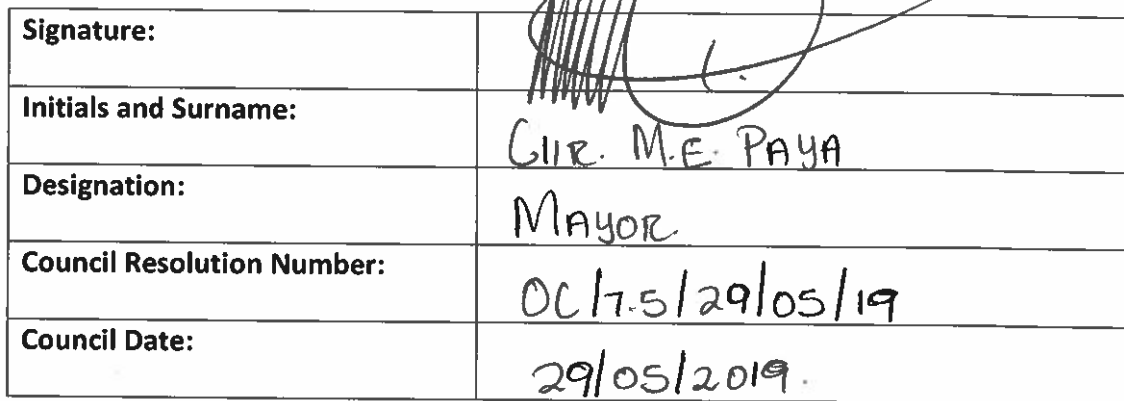 Signature:
Initials and Surname:
Cllr. M.E. PAYA
Designation:
MAYOR
Council Resolution Number:
OC/7.5/29/05/19
Council Date:
29/05/2019.